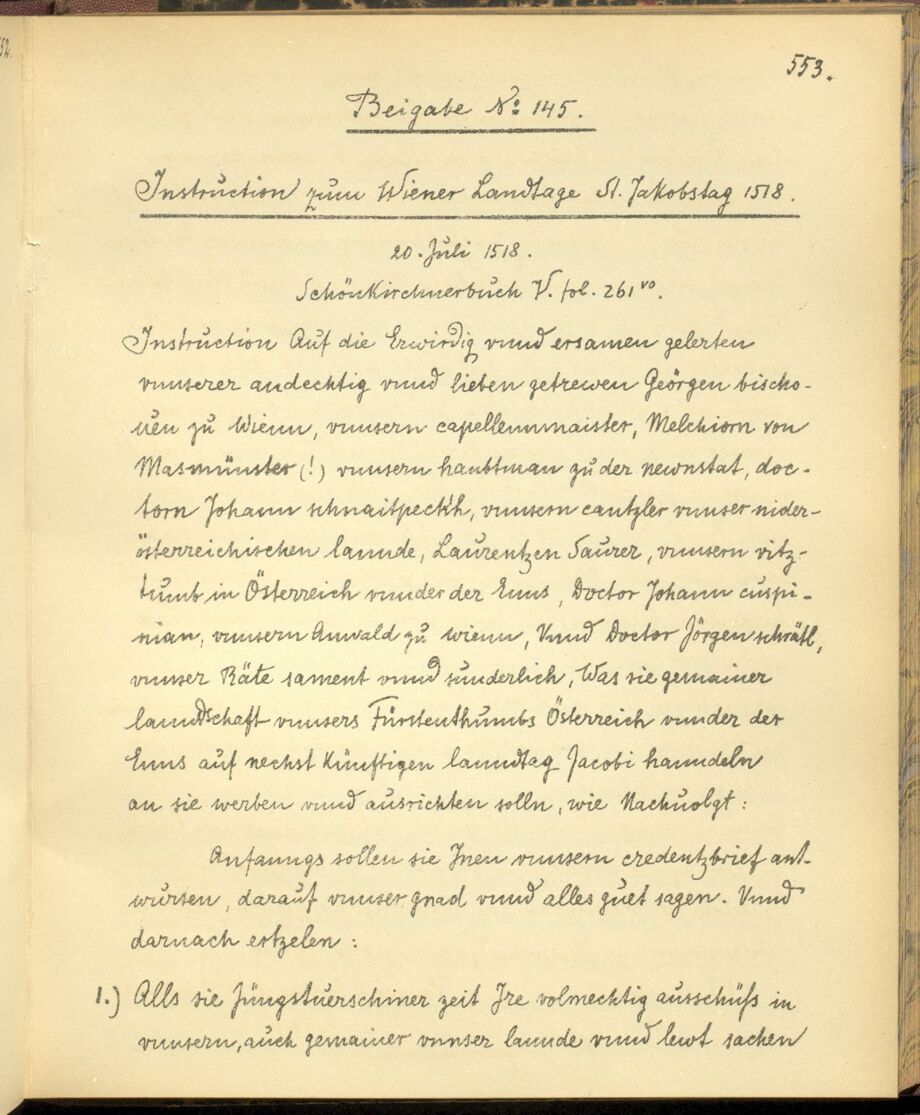 52.
553.
Beigabe No 145.
Instruction zum Wiener Landtage St. Jakobstag 1518.
20. Juli 1518.
Schönkirchnerbuch V. fol. 261 vo.
Instruction Auf die Erwirdig vnnd ersamen gelerten
vnnserer andechtig vnnd lieben getrewen Geörgen bischo-
uen zu Wienn, vnnsern capellennmaister, Melchiorn von
Masmünster (!) vnnsern haubtman zu der newnstat, doc-
torn Johann schnaitpeckh, vnnsern cantzler vnnser nider-
österreichischen lannde, Laurentzen Saurer, vnnsern vitz-
tumb in Österreich vnnder der Enns, Doctor Johann cuspi-
nian, vnnsern Anwald zu wienn, Vnnd Doctor Jörgen schrätl,
vnnser Räte sament vnnd sunderlich, Was sie gemainer
lanndschaft vnnsers Fürstenthumbs Österreich vnnder der
Enns auf nechst künftigen lanndtag Jacobi hanndeln
an sie werben vnnd ausrichten solln, wie Nachuolgt:
Anfanngs sollen sie Jnen vnnsern credentzbrief ant-
wurten, darauf vnnser gnad vnnd alles guet sagen. Vnnd
darnach ertzelen:
1.) Alls sie Jüngstuerschiner zeit Jre volmechtig ausschüss in
vnnsern, auch gemainer vnnser lannde vnnd lewt sachen